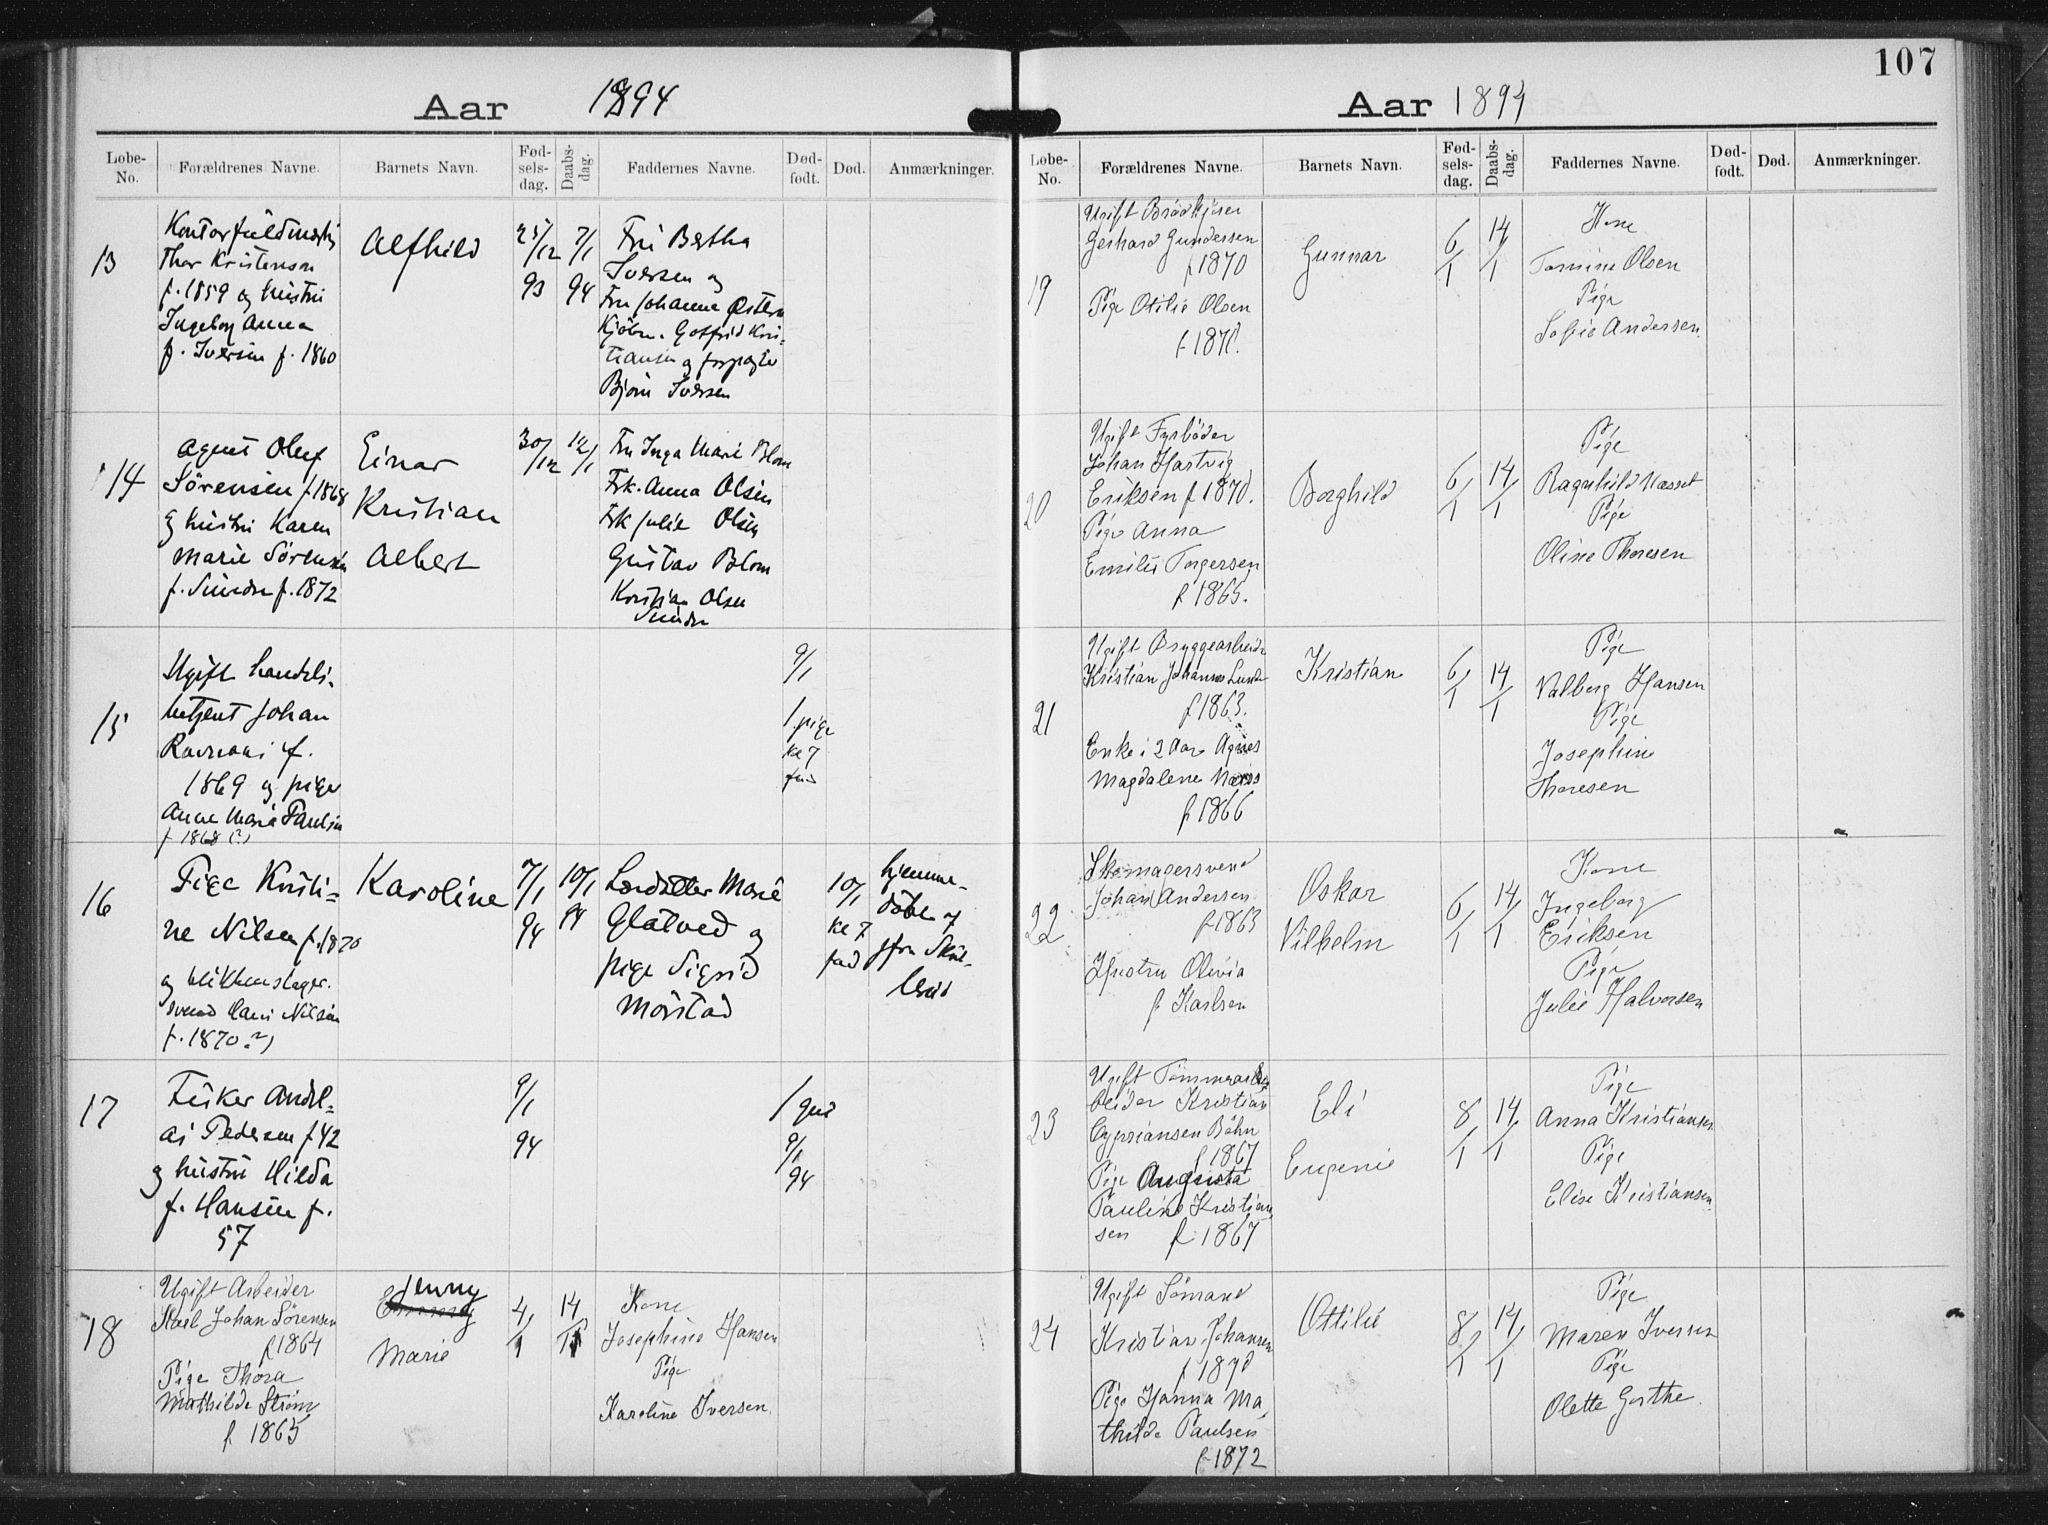 Aar 1894
Løbe-No. Forældrenes Navne. Barnets Navn. Fødselsdag. Daabsdag. Faddernes Navne. Dødfødt. Død. Anmærkninger.
13
Thor Kristensen
f. 1859 og hustru
Ingeborg Anna
f. Iversen f. 1860
Alfhild
25/12 93
7/1 94
Fru Bertha
Iversen og
Fru Johanne
Kjøbm. Gotfrid Kri-
stiansen og forpagter
Bjørn Iversen
14
Agent Oluf
Sørensen f 1868
og hustru Karen
Marie Sørensen
f. 1872
Einar
Kristian
Albert
30/12
12/1
Fru Inga Marie Blom
Frk. Anna Olsen
Frk Julie Olsen
Gustav Blom
Kristian Olsen
15
Ugift handels-
betjent Johan
f.
1869 og pige
Anne Marie Paulsen
f 1868 (?)
9/1
1 pige
16
Pige Kristi=
ne Nilsen f. 1870
og blikkenslager-
svend Hans Nilsen
f. 1870 ?)
Karoline
7/1 94
10/1 94
Marie
Glatved og
pige Sigrid
Mørstad
10/1
hjemme-
døbt af
17
Fisker Andre-
as Pedersen f 42
og hustru Hilda
f. Hansen f.
57
9/1 94
1 gut
9/1 94
18
Ugift Arbeider
Karl Johan Sørensen
f 1864
Pige Thora
Mathilde Strøm
f. 1865
Jenny
Marie
4/1
14/1
Kone
Josephine Hansen
Pige
Karoline Iversen
107
Aar 1894
Løbe-No. Forældrenes Navne. Barnets Navn. Fødselsdag. Daabsdag. Faddernes Navne. Dødfødt. Død. Anmærkninger.
19
Ugift Brødkjører
Gerhard Gundersen
f 1870
Pige Otilie Olsen
f 1870.
Gunnar
6/1
14/1
Kone
Tomine Olsen
Pige
Sofie Andersen
20
Ugift Fyrbøder
Johan Hartvig
Eriksen f 1870.
Pige Anna
Emilie Torgersen
f 1865.
Borghild
6/1
14/1
Pige
Ragnhild Næsset
Pige
Oline Thoresen
21
Ugift Bryggearbeider
Kristian Johannes Lunde
f 1863.
Enke i 2 Aar Agnes
Magdalene
f 1866
Kristian
6/1
14/1
Pige
Valborg Hansen
Pige
Josephine
Thoresen
22
Skomagersvend
Johan Andersen
f 1863
Hustru Olivia
f Karlsen
Oskar
Vilhelm
6/1
14/1
Kone
Ingeborg
Eriksen
Pige
Julie Halvorsen
23
Ugift Tømmerar-
beider Kristian
Cypriansen Bøhn
f 1867
Pige Augusta
Pauline Kristian
sen f. 1867
Eli
Eugenie
8/1
14/1
Pige
Anna Kristiansen
Pige
Elise Kristiansen
24
Ugift Sømand
Kristian Johansen
f 1870
Pige Hanna Ma-
thilde Paulsen
f 1872
Ottilie
8/1
14/1
Pige
Maren Iversen
Pige
Olette Gerthe